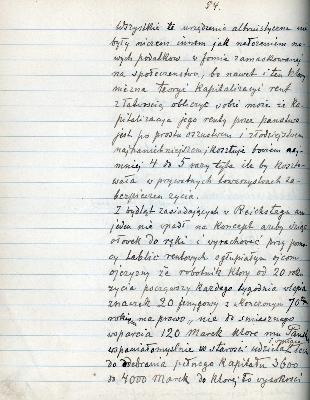 54.
Wszystkie te urządzenia altruistyczne nie
były niczem innem jak nałożeniem no-
wych podatków w formie zamaskowanej
na społeczeństwo, bo nawet i ten który
nie zna teoryi kapitalizacyi rent
z łatwością obliczyć sobie może że ka-
pitalizacja jego renty przez państwo
jest po prostu oszustwem i złodziejstwem
najhaniebniejszem, kosztuje bowiem naj-
mniej 4 do 5 razy tyle ile by koszto-
wała w prywatnych towarzystwach za-
bezpieczeń życia.
Z bydląt zasiadających w Reichstagu ani
jeden nie wpadł na koncept ażeby wziąć
ołówek do ręki i wyrachować przy pomo-
cy tablic rentowych ogłupiałym ojcom
ojczyzny że robotnik który od 20 roku
życia począwszy każdego tygodnia wlepia
znaczek 20 fenygowy z skończonym 70tm
rokiem ma prawo, nie do śmiesznego
wsparcia 120 Marek które mu Państwo
wspaniałomyślnie w starości udziela, lecz
do odebrania pełnego kapitału 3600
do 4000 Marek do której to wysokości